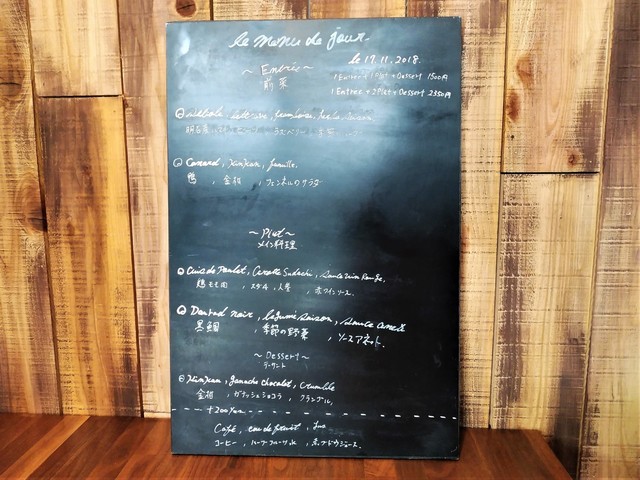 le menu de jour.
le 17.11.2018.
~ Entrée ~
前菜
1 Entrée + 1 Plat + Dessert 1500円
1 Entrée + 2 Plat + Dessert 2350円
明石産
Canard, Kinkan, fenouille.
鴨 , 金柑 , フェンネルのサラダ
~ Plat ~
メイン料理
Cuis de Poulet, Carotte Sudachi, Sauce Vin Rouge.
鶏モモ肉 , スダチ人参 , 赤ワインソース.
Daurad noir, légume saison, sauce aneth
黒鯛 , 季節の野菜 , ソースアネット.
~ Dessert ~
デザート
Kinkan, ganache chocolat, Crumble
金柑 , ガナッシュショコラ , クランブル,
+200Yen
Café, eau de fruit, Jus
コーヒー , ハーブフルーツ水 , ブドウジュース.